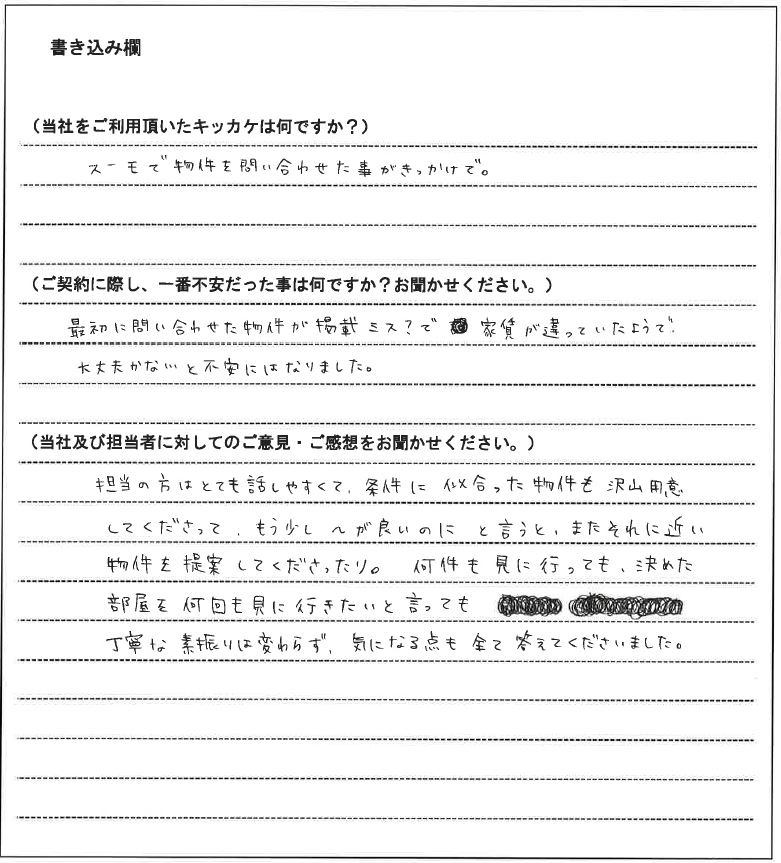 書き込み欄
（当社をご利用頂いたキッカケは何ですか？）
スーモで物件を問い合わせた事がきっかけで。
（ご契約に際し、一番不安だった事は何ですか？お聞かせください。）
最初に問い合わせた物件が掲載ミス？で 家賃が違っていたようで、
大丈夫かないと不安にはなりました。
（当社及び担当者に対してのご意見・ご感想をお聞かせください。）
担当の方はとても話しやすくて、条件に似合った物件も沢山用意
してくださって、もう少し〜が良いのに と言うと、またそれに近い
物件を提案してくださったり。 何件も見に行っても、決めた
部屋を何回も見に行きたいと言っても
丁寧な素振りは変わらず、気になる点も全て答えてくださいました。